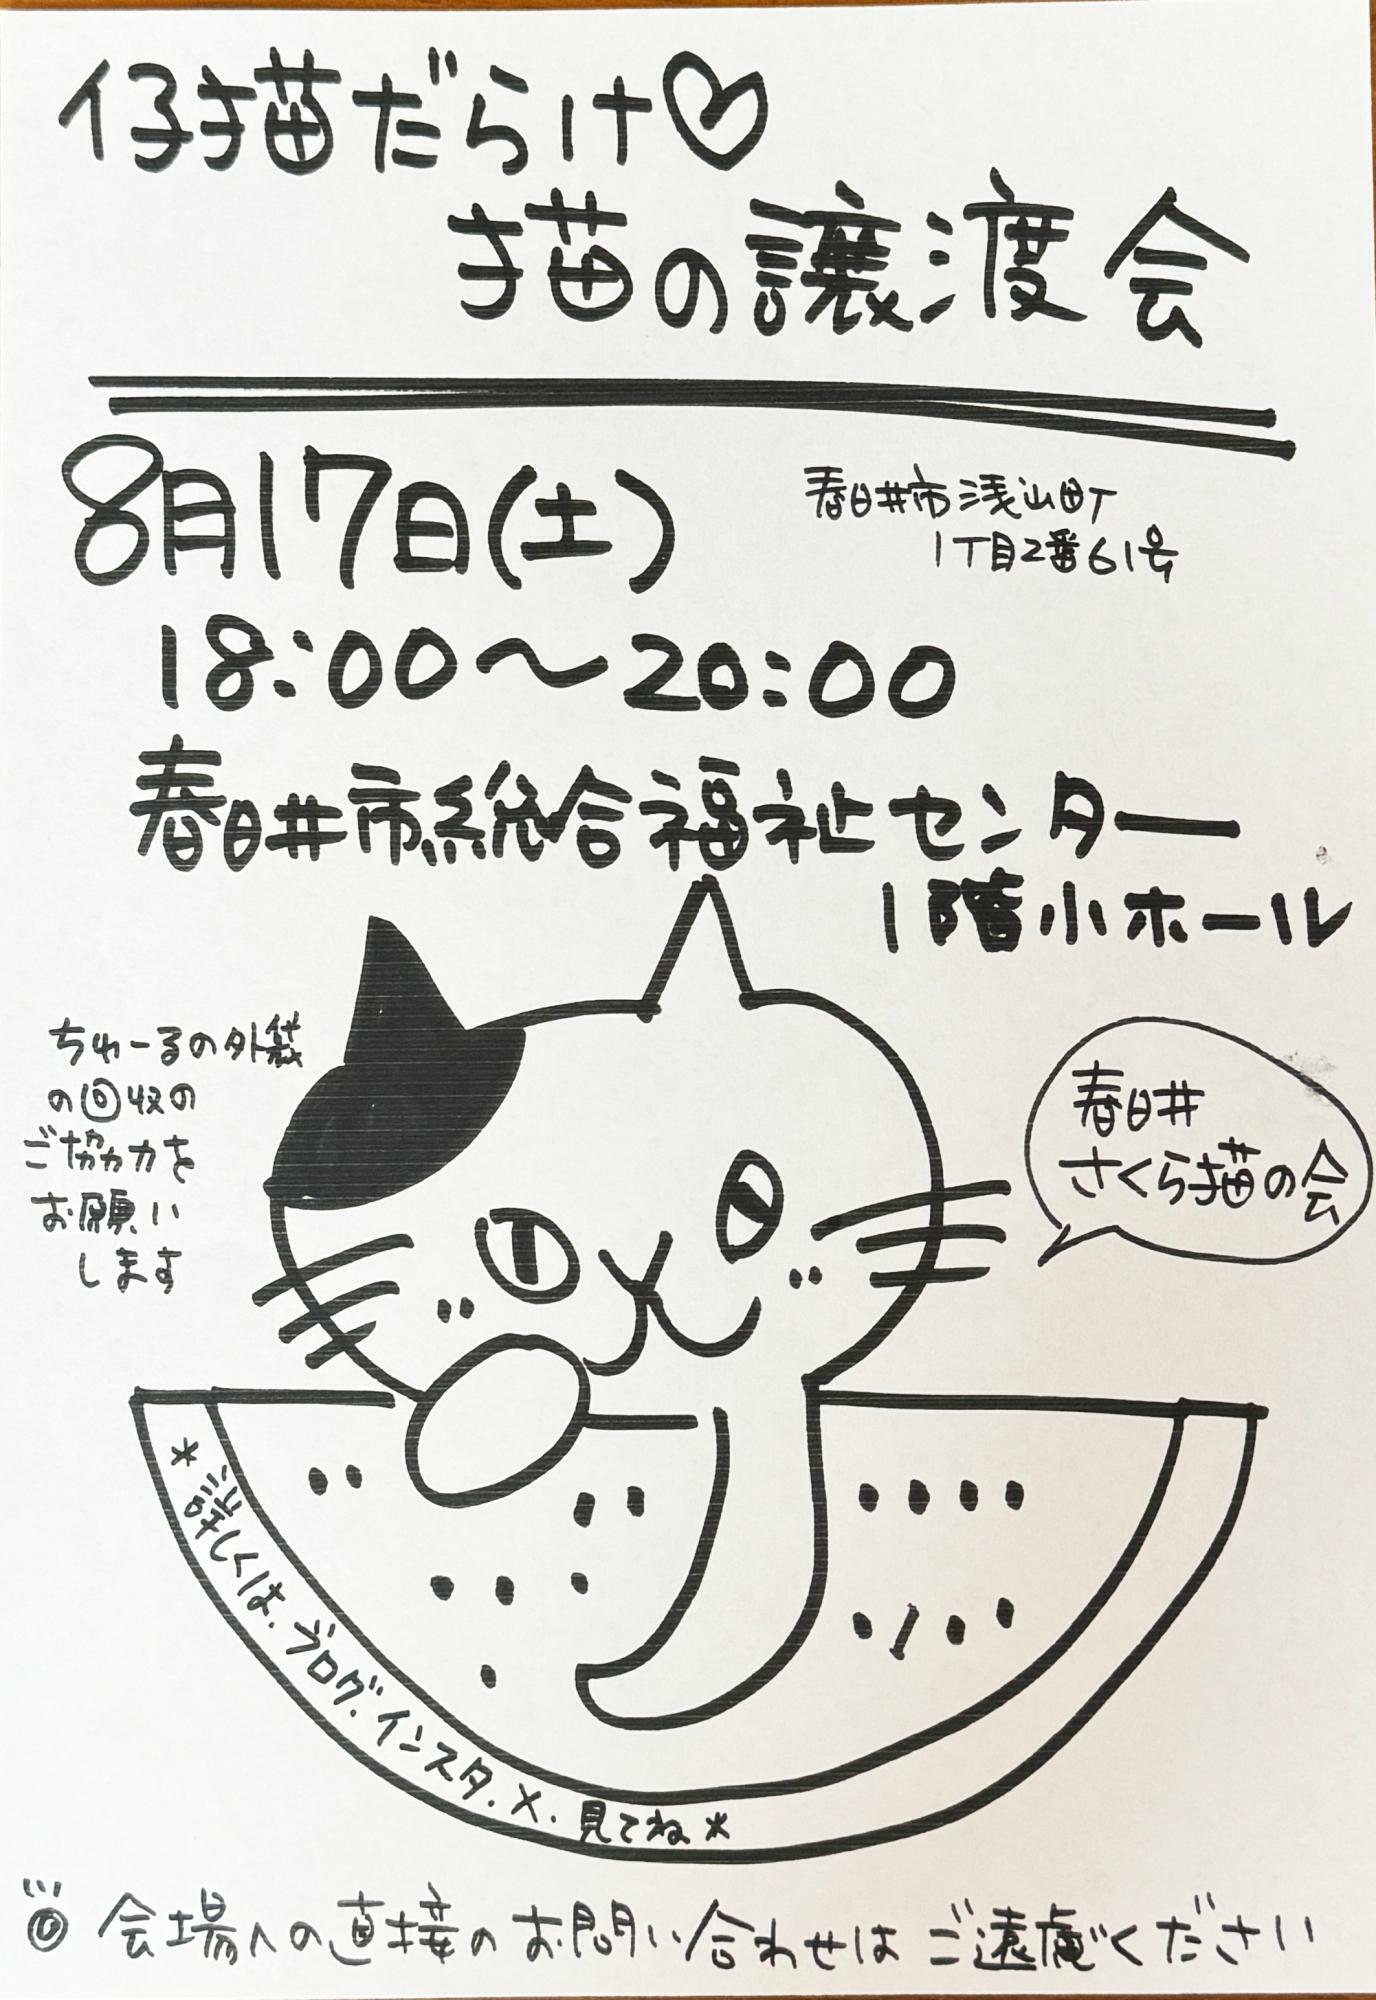 仔猫だらけ♡
猫の譲渡会
8月17日(土)
春日井市浅山町
1丁目2番61号
18:00～20:00
春日井市総合福祉センター
1階小ホール
ちゅーるの外袋
の回収の
ご協力を
お願い
します
春日井
さくら猫の会
*詳しくは、ブログ.インスタ.X.見てね*
◎会場への直接のお問い合わせはご遠慮ください